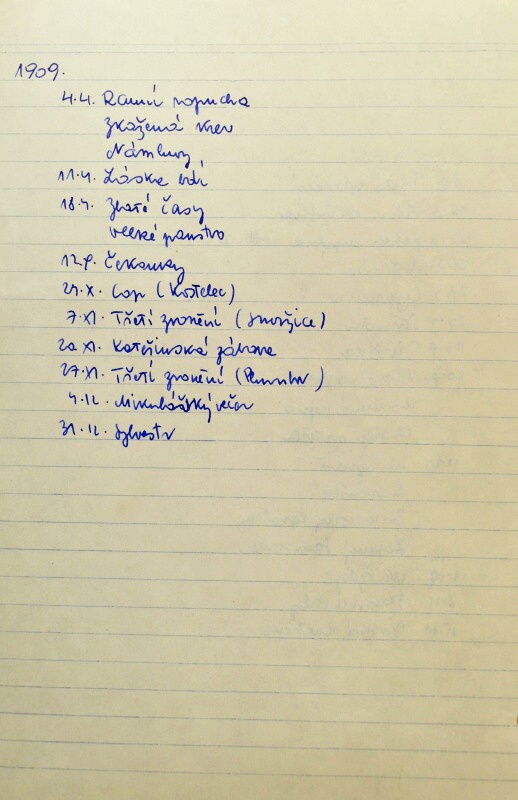 1909.
4.4. Ranní ropucha
Zkažená krev
Námluvy
11.4. Láska bdí
18.4. Zlaté časy
velké panstvo
12.9. Čekanky
24.X. Cop (Kostelec)
7.XI. Třetí zvonění (Smržice)
20.XI. Kateřinská zábava
27.XI. Třetí zvonění
4.12. Mikulášský večer
31.12. Sylvestr